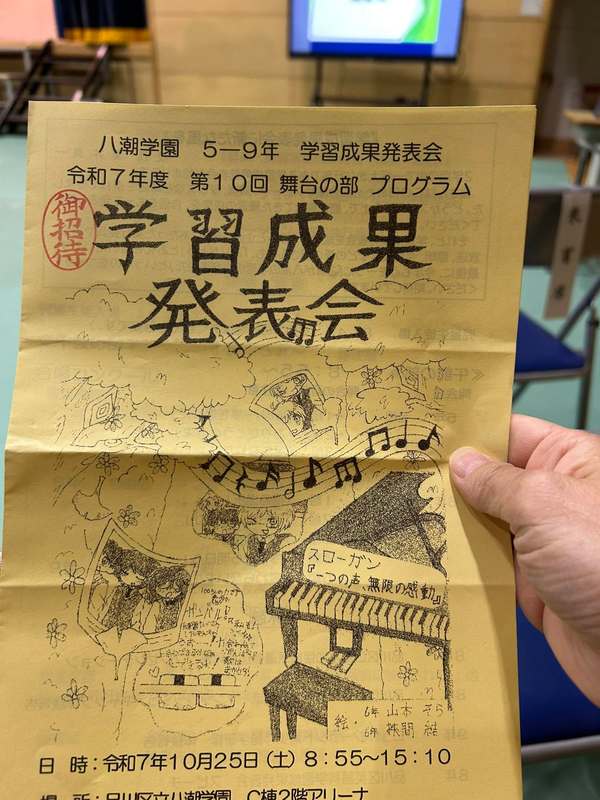 八潮学園 5―9年 学習成果発表会
令和7年度 第10回 舞台の部 プログラム
御招待
学習成果
発表会
スローガン
『一つの声、無限の感動』
絵・6年 山本 そら
6年 秩間 結
日 時：令和7年10月25日（土）8：55～15：10
場 所：品川区立八潮学園 C棟2階アリーナ